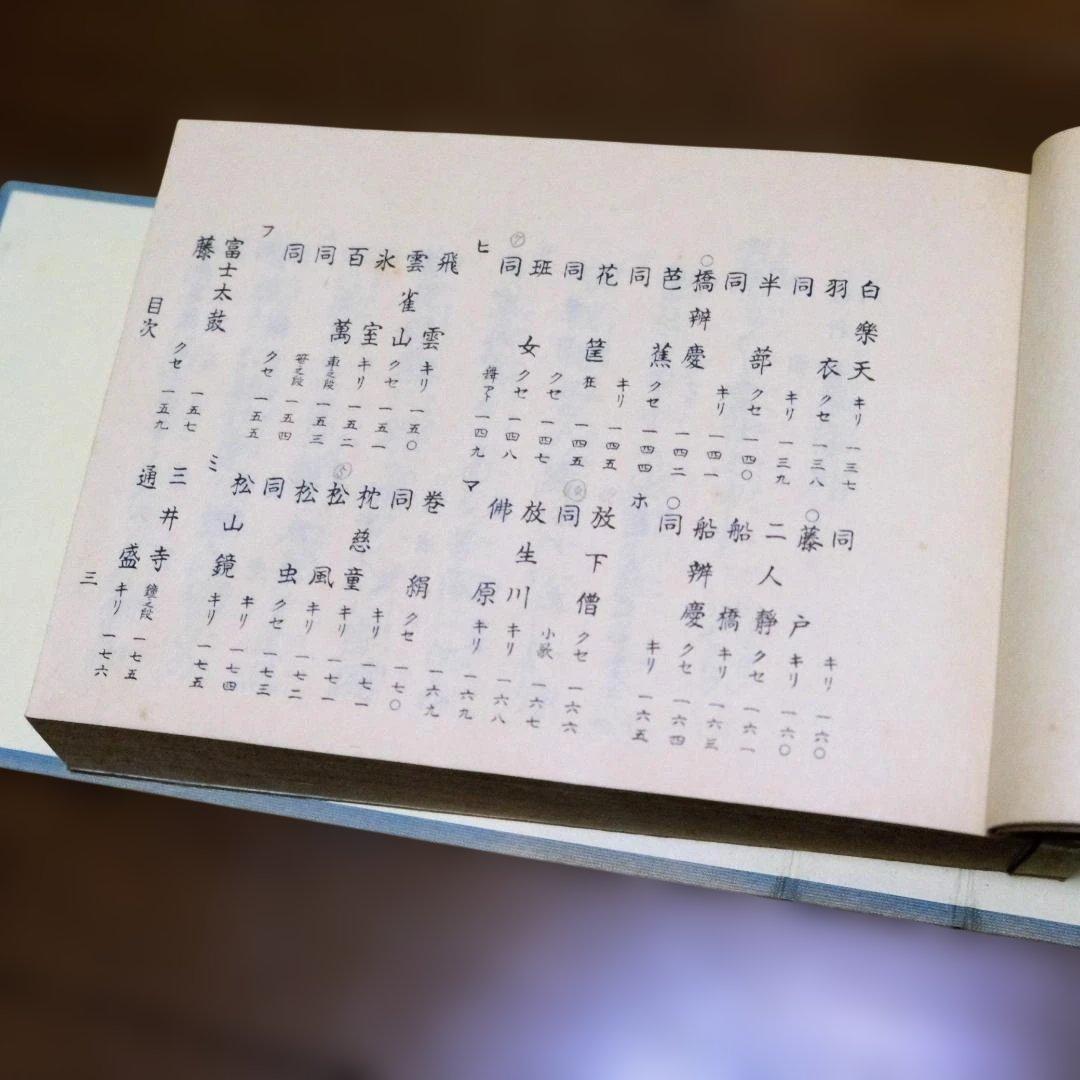 白樂天 キリ 一三七
羽衣 クセ 一三八
同 キリ 一三九
半蔀 クセ 一四〇
同 キリ 一四一
○橋辨慶 一四二
芭蕉 クセ 一四四
同 キリ 一四五
花筐 狂 一四五
同 クセ 一四七
班女 クセ 一四八
同 舞アト 一四九
ヒ
飛雲 キリ 一五〇
雲雀山 クセ 一五一
氷室 キリ 一五二
百萬 車之段 一五三
同 笹之段 一五四
同 クセ 一五五
フ
富士太鼓 一五七
藤 クセ 一五九
同 キリ 一六〇
○藤戸 キリ 一六〇
二人靜 クセ 一六一
船橋 キリ 一六三
船辨慶 クセ 一六四
○同 キリ 一六五
ホ
放下僧 クセ 一六六
同 小歌 一六七
放生川 キリ 一六八
佛原 キリ 一六九
マ
一六九
卷絹 クセ 一七〇
同 キリ 一七一
枕慈童 キリ 一七一
松風 キリ 一七二
松虫 クセ 一七三
同 キリ 一七四
松山鏡 キリ 一七五
ミ
三井寺 鐘之段 一七五
通盛 キリ 一七六
目次
三